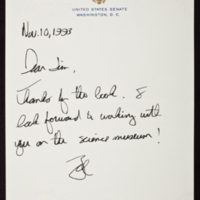 UNITED STATES SENATE
WASHINGTON, D.C.
Nov. 10, 1993
Dear Jim,
Thanks for the book. I
look forward to working with
you on the science museum!